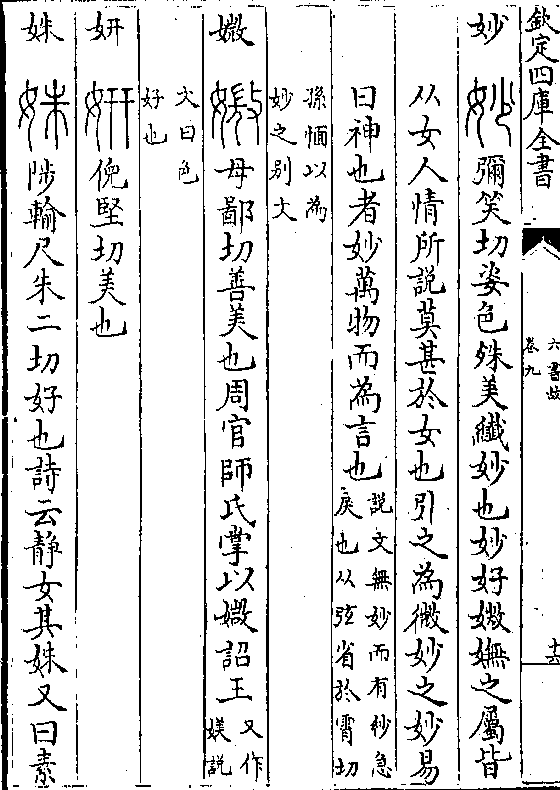 欽定四庫全書
六書故
卷九
十六
妙
彌笑切姿色殊美纖妙也妙好媺嫵之屬皆
从女人情所說莫甚於女也引之為微妙之妙易
曰神也者妙萬物而為言也
說文無妙而有紗急
戾也从弦省於霄切
孫愐以為
妙之別文
媺
母鄙切善美也周官師氏掌以媺詔王
又作
媄說
文曰色
好也
妍
倪堅切美也
姝
陟輸尺朱二切好也詩云静女其姝又曰素